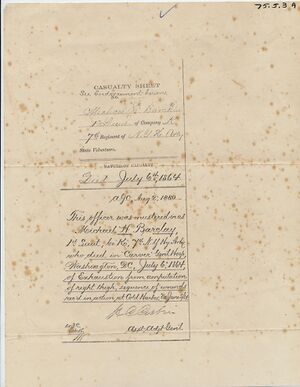 75.5.3A
CASUALTY SHEET
See Endorsement
Michael
1st Lieut of Company K
7th Regiment of N.Y. H. Arty
State Volunteers.
NATURE OF CASUALTY
Died July 6th, 1864
AGO, Aug 1880
This officer was mustered as
Michael H. Barclay,
1st Lieut, Co K, 7th N.Y. Hy Arty
who died in Carver Genl Hosp,
Washington, DC, July 6, 1864
of Exhaustion from amputation
of right thigh, sequence of wounds
rec'd in action at Cold Harbor, Va,
Asst Adjt Genl.